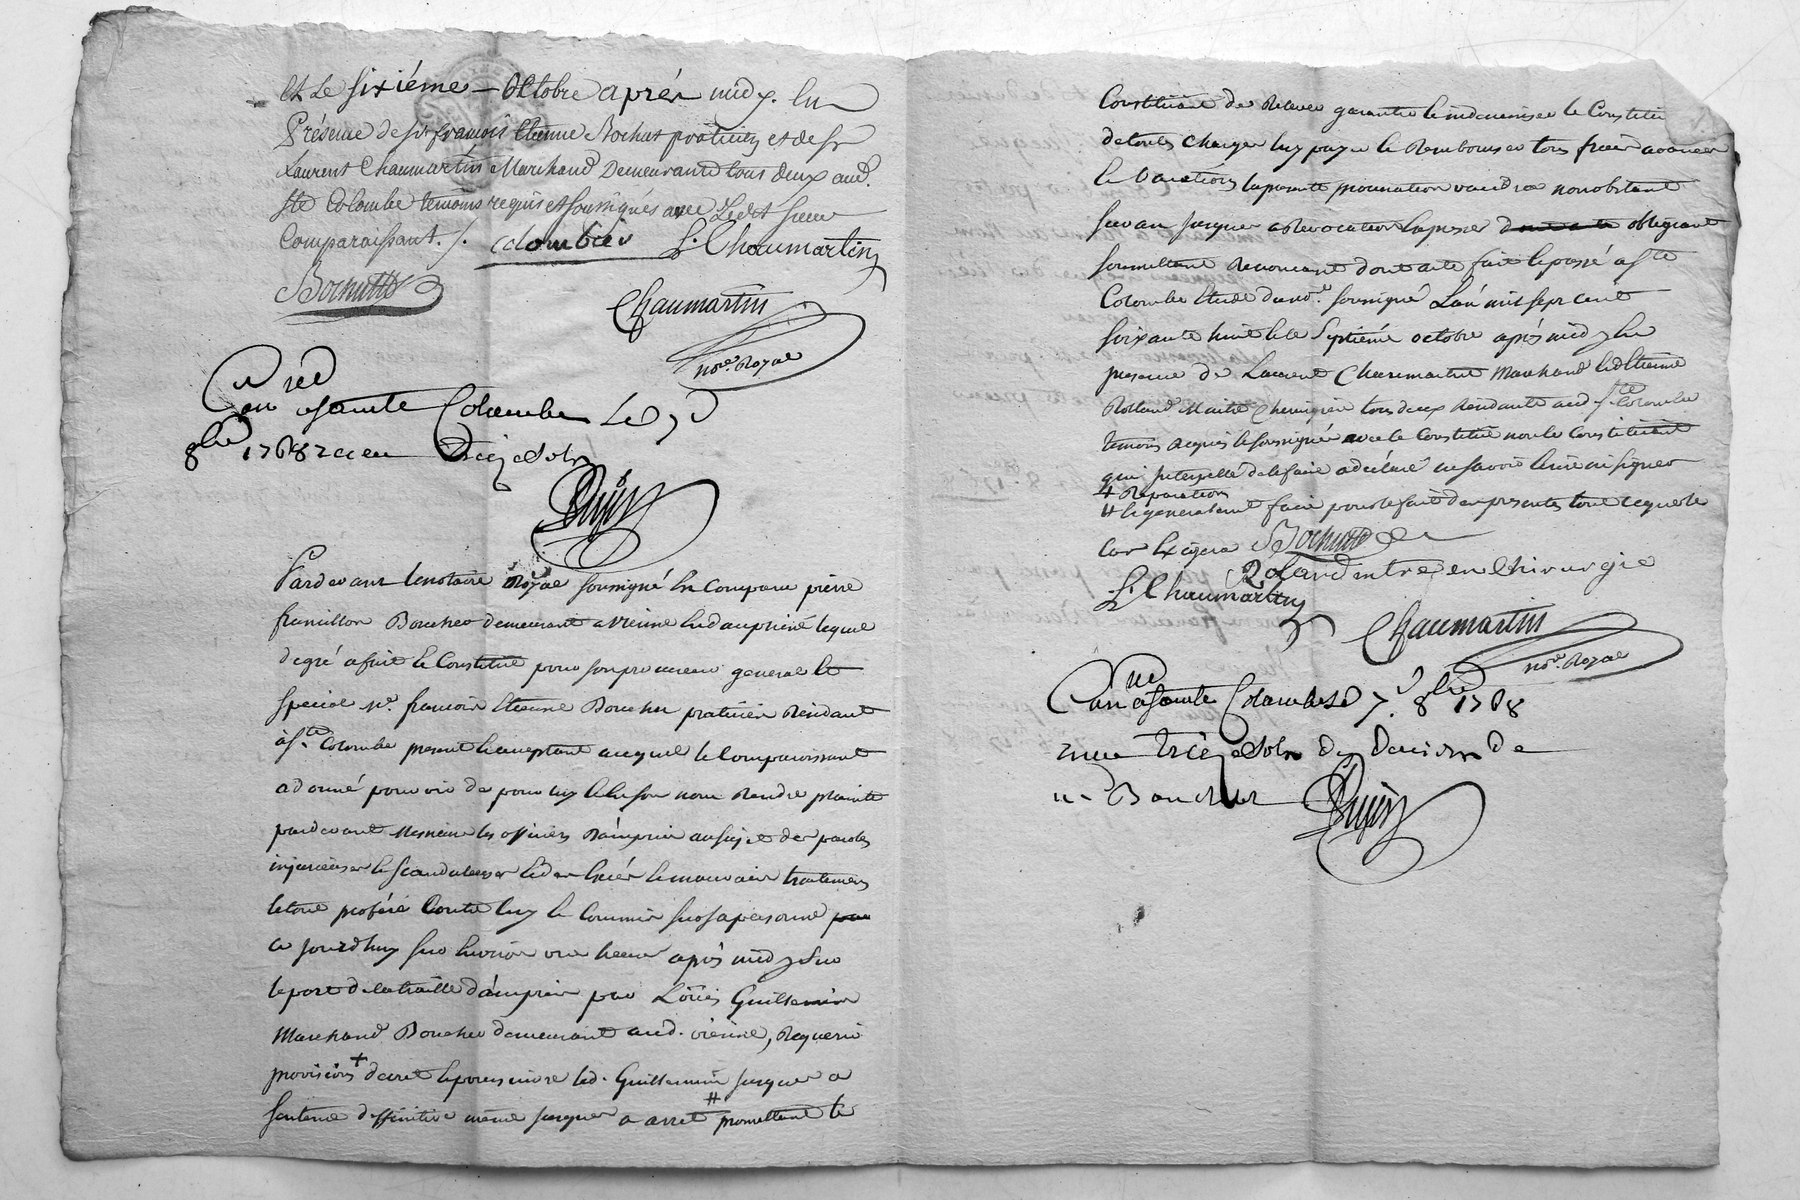 et le sixiéme octobre aprés midy. En
Présence de sr. françois Etienne Bochut praticien et de sr
Laurent Chaumartin Marchand Demeurants tous deux aud.
ste Colombe temoins requis et soussignés avec Ledit sieur
Comparaissant ./. colombier L. Chaumartin
Bochutt
Chaumartin
nore. Royal
Con rlé
a sainte Colombe Le 7
8bre 1768 receu treize sols
Pardevant le notaire Royal soussigné En Comparu pierre
francillon Boucher demeurant a vienne En dauphiné lequel
de gré a fait et Constitué pour son procureur general et
special me. francois Etienne Bochu praticien Résidant
à ste. Colombe present et acceptant auquel le Comparoissant
a donné pouvoir de pour luy et En son nom Rendre plainte
pardevant Messieurs les officiers d'ámpuis au sujet des paroles
injurieuses et Scandaleuses et des Excès et mauvais traitemens
le tout proféré Contre luy et Commis sur sa personne
ce jourdhuy sur Environ une heure après midy Sur
le port de la traille d'ámpuis par Loüis Guillermin
Marchand Boucher demeurant aud. vienne, Requerir
provisions + decret et poursuivre led. Guillermin jusques a
sentence deffinitive même jusques a arret # promettant le
Constituant de Relever garantir et indemniser le Constitué
de toutes Charges luy payer et Rembourser tous frais avancés
et Vacations la presente procuration vaudra nonobstant
suran jusques a Revocation Expresse obligeant
soumettant Renonceant dont acte fait et passé a ste
Colombe Etude du nore. soussigné L'an mil sept cent
soixante huit et le Septiéme octobre après midy En
presence de Laurent Chaumartin Marchand et d'Etienne
Rolland Maitre Chirurgien tous deux Residants aud. ste Colombe
temoins Requis et soussignés avec le Constitué non le Constituant
qui Interpellé de le faire a déclaré ne savoir Ecrire ni signer
+ Reparation
# et generalement faire pour le fait des presentes tout ce que le
Cas Exigera Bochutt
Roland mtre en Chirurgie
L. Chaumartin
Chaumartin
nore. Royal
Con rlé
a sainte Colombe Le 7. 8bre 1768
receu treize sols